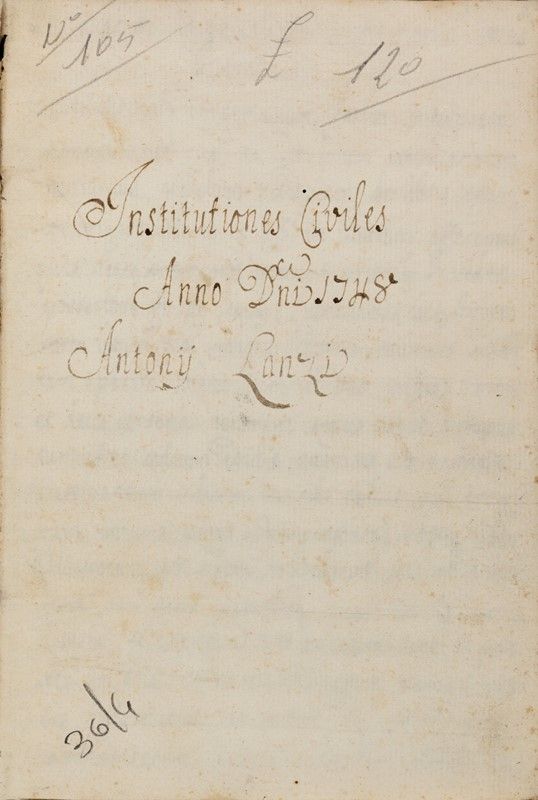 No 105
£ 120
Institutiones Civiles
Anno Dni 1748
Antonij Lanzi
36/4